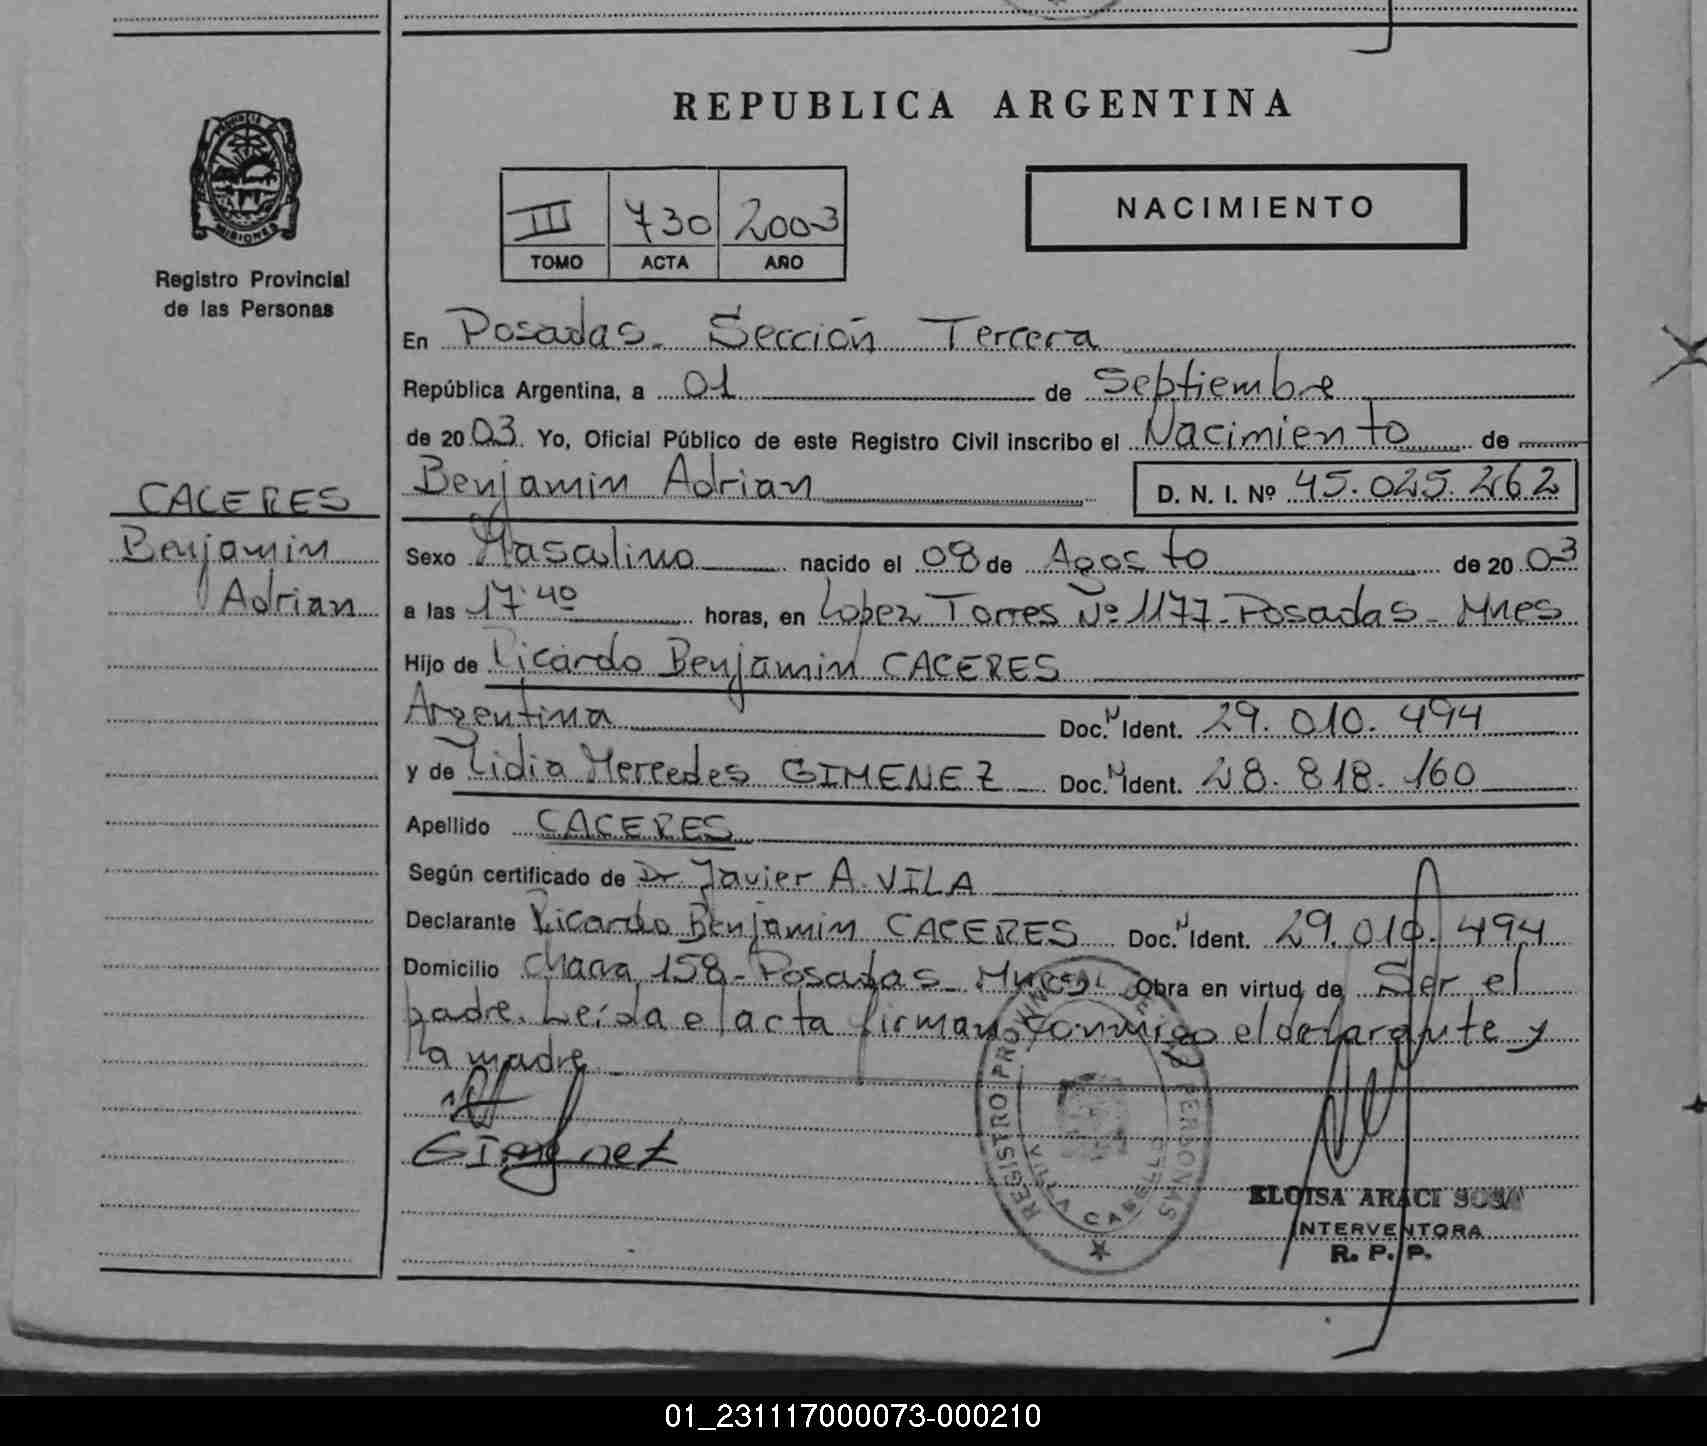 REPUBLICA ARGENTINA
PROVINCIA DE
MISIONES
Registro Provincial
de las Personas
III 730 2003
TOMO ACTA AÑO
NACIMIENTO
En Posadas - Sección Tercera
República Argentina, a 01 de Septiembre
de 2003. Yo, Oficial Público de este Registro Civil inscribo el Nacimiento de
Benjamin Adrian D. N. I. Nº 45.025.262
CACERES
Benjamin
Adrian
Sexo Masculino nacido el 08 de Agosto de 2003
a las 17:40 horas, en Lopez Torres Nº 1177 - Posadas - Mnes
Hijo de Ricardo Benjamin CACERES
Argentina Doc. N Ident. 29.010.494
y de Lidia Mercedes GIMENEZ Doc. N Ident. 28.818.160
Apellido CACERES
Según certificado de Dr. Javier A. VILA
Declarante Ricardo Benjamin CACERES Doc. N Ident. 29.010.494
Domicilio Chacra 158 - Posadas - Mnes. Obra en virtud de Ser el
padre. Leída el acta firman conmigo el declarante y
la madre
Gimenez
REGISTRO PROVINCIAL DE LAS PERSONAS
ELOISA ARACI SOSA
INTERVENTORA
R. P. P.
01_231117000073-000210